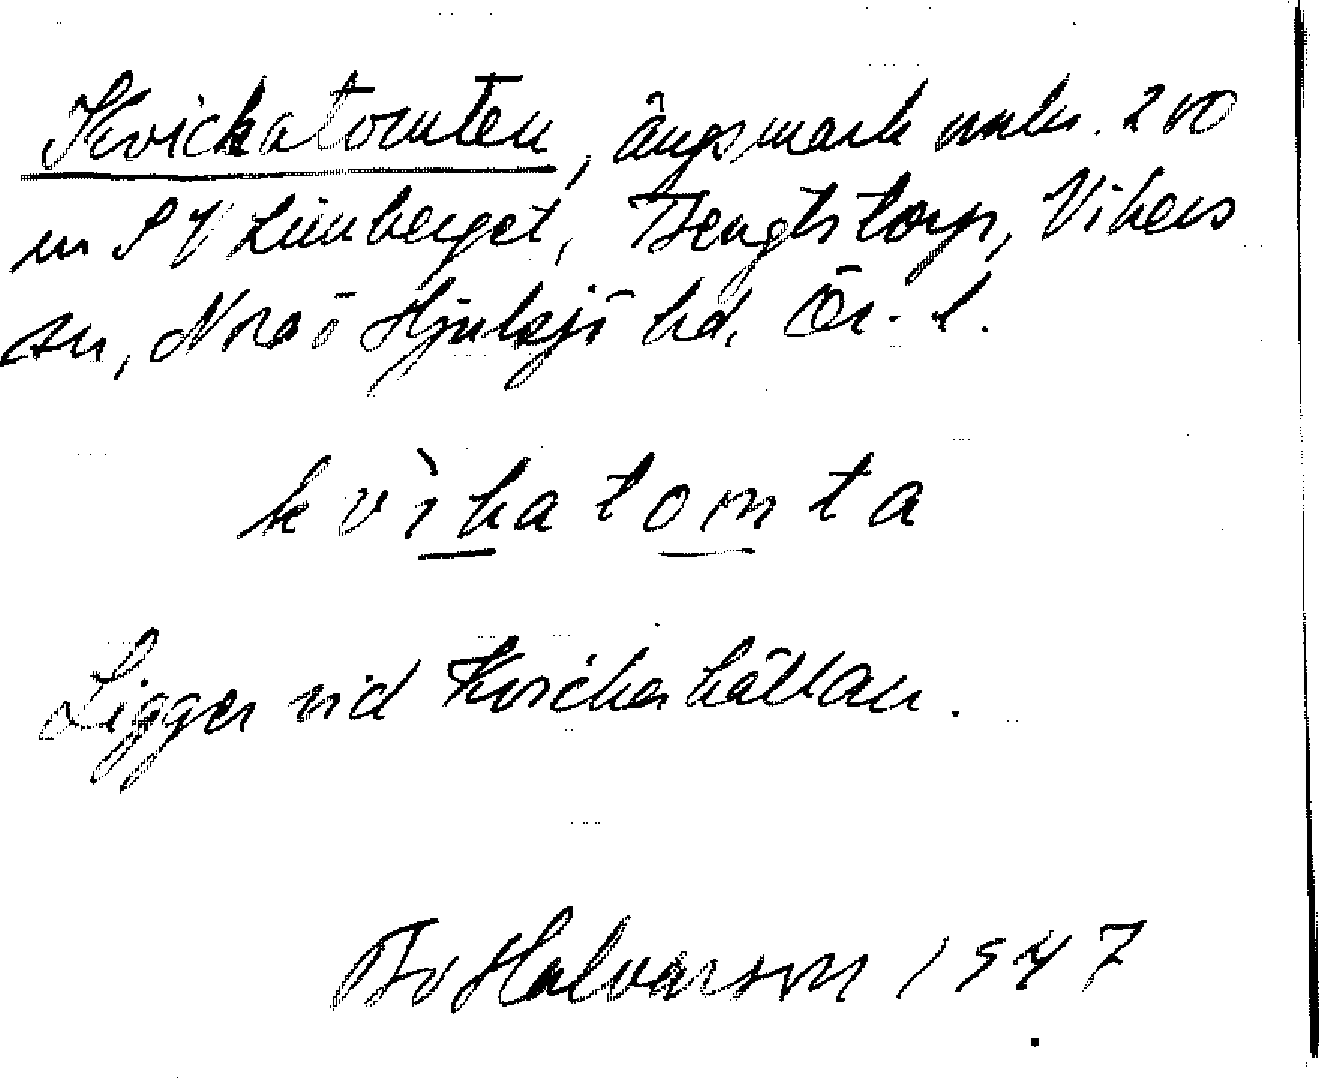 Kvickatomten, ängsmark omkr. 200
m SV Limberget, Bengtstorp, Vikers
sn, Nora o Hjulsjö hd, Ör. l.
kvìkatomta
Ligger vid Kvickahällan.
Bo Halvarson 1947